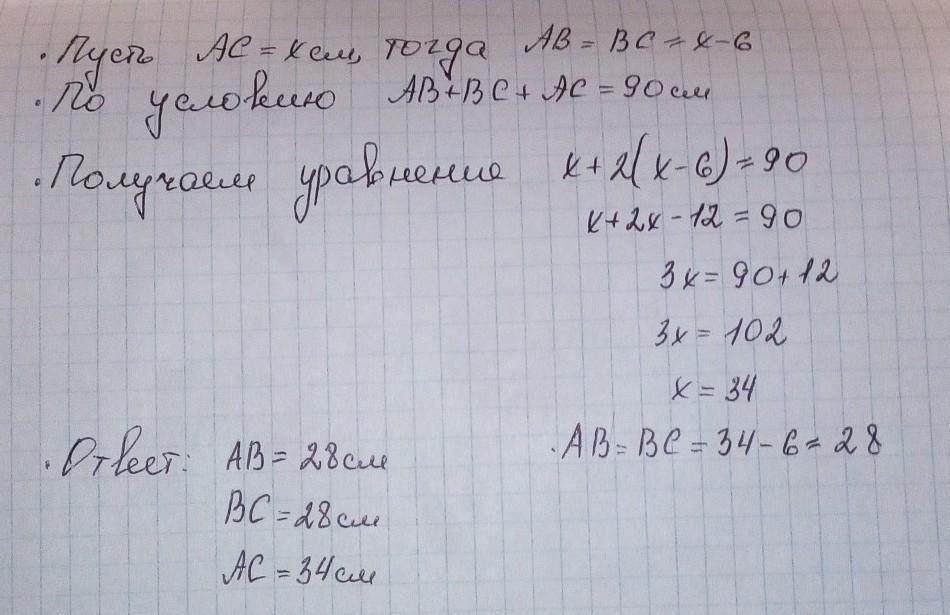 · Пусть AC = x см, тогда AB = BC = x-6
· По условию AB+BC+AC = 90 см
· Получаем уравнение x+2(x-6)=90
x+2x-12=90
3x=90+12
3x=102
x=34
· AB=BC=34-6=28
· Ответ: AB=28см
BC=28см
AC=34см